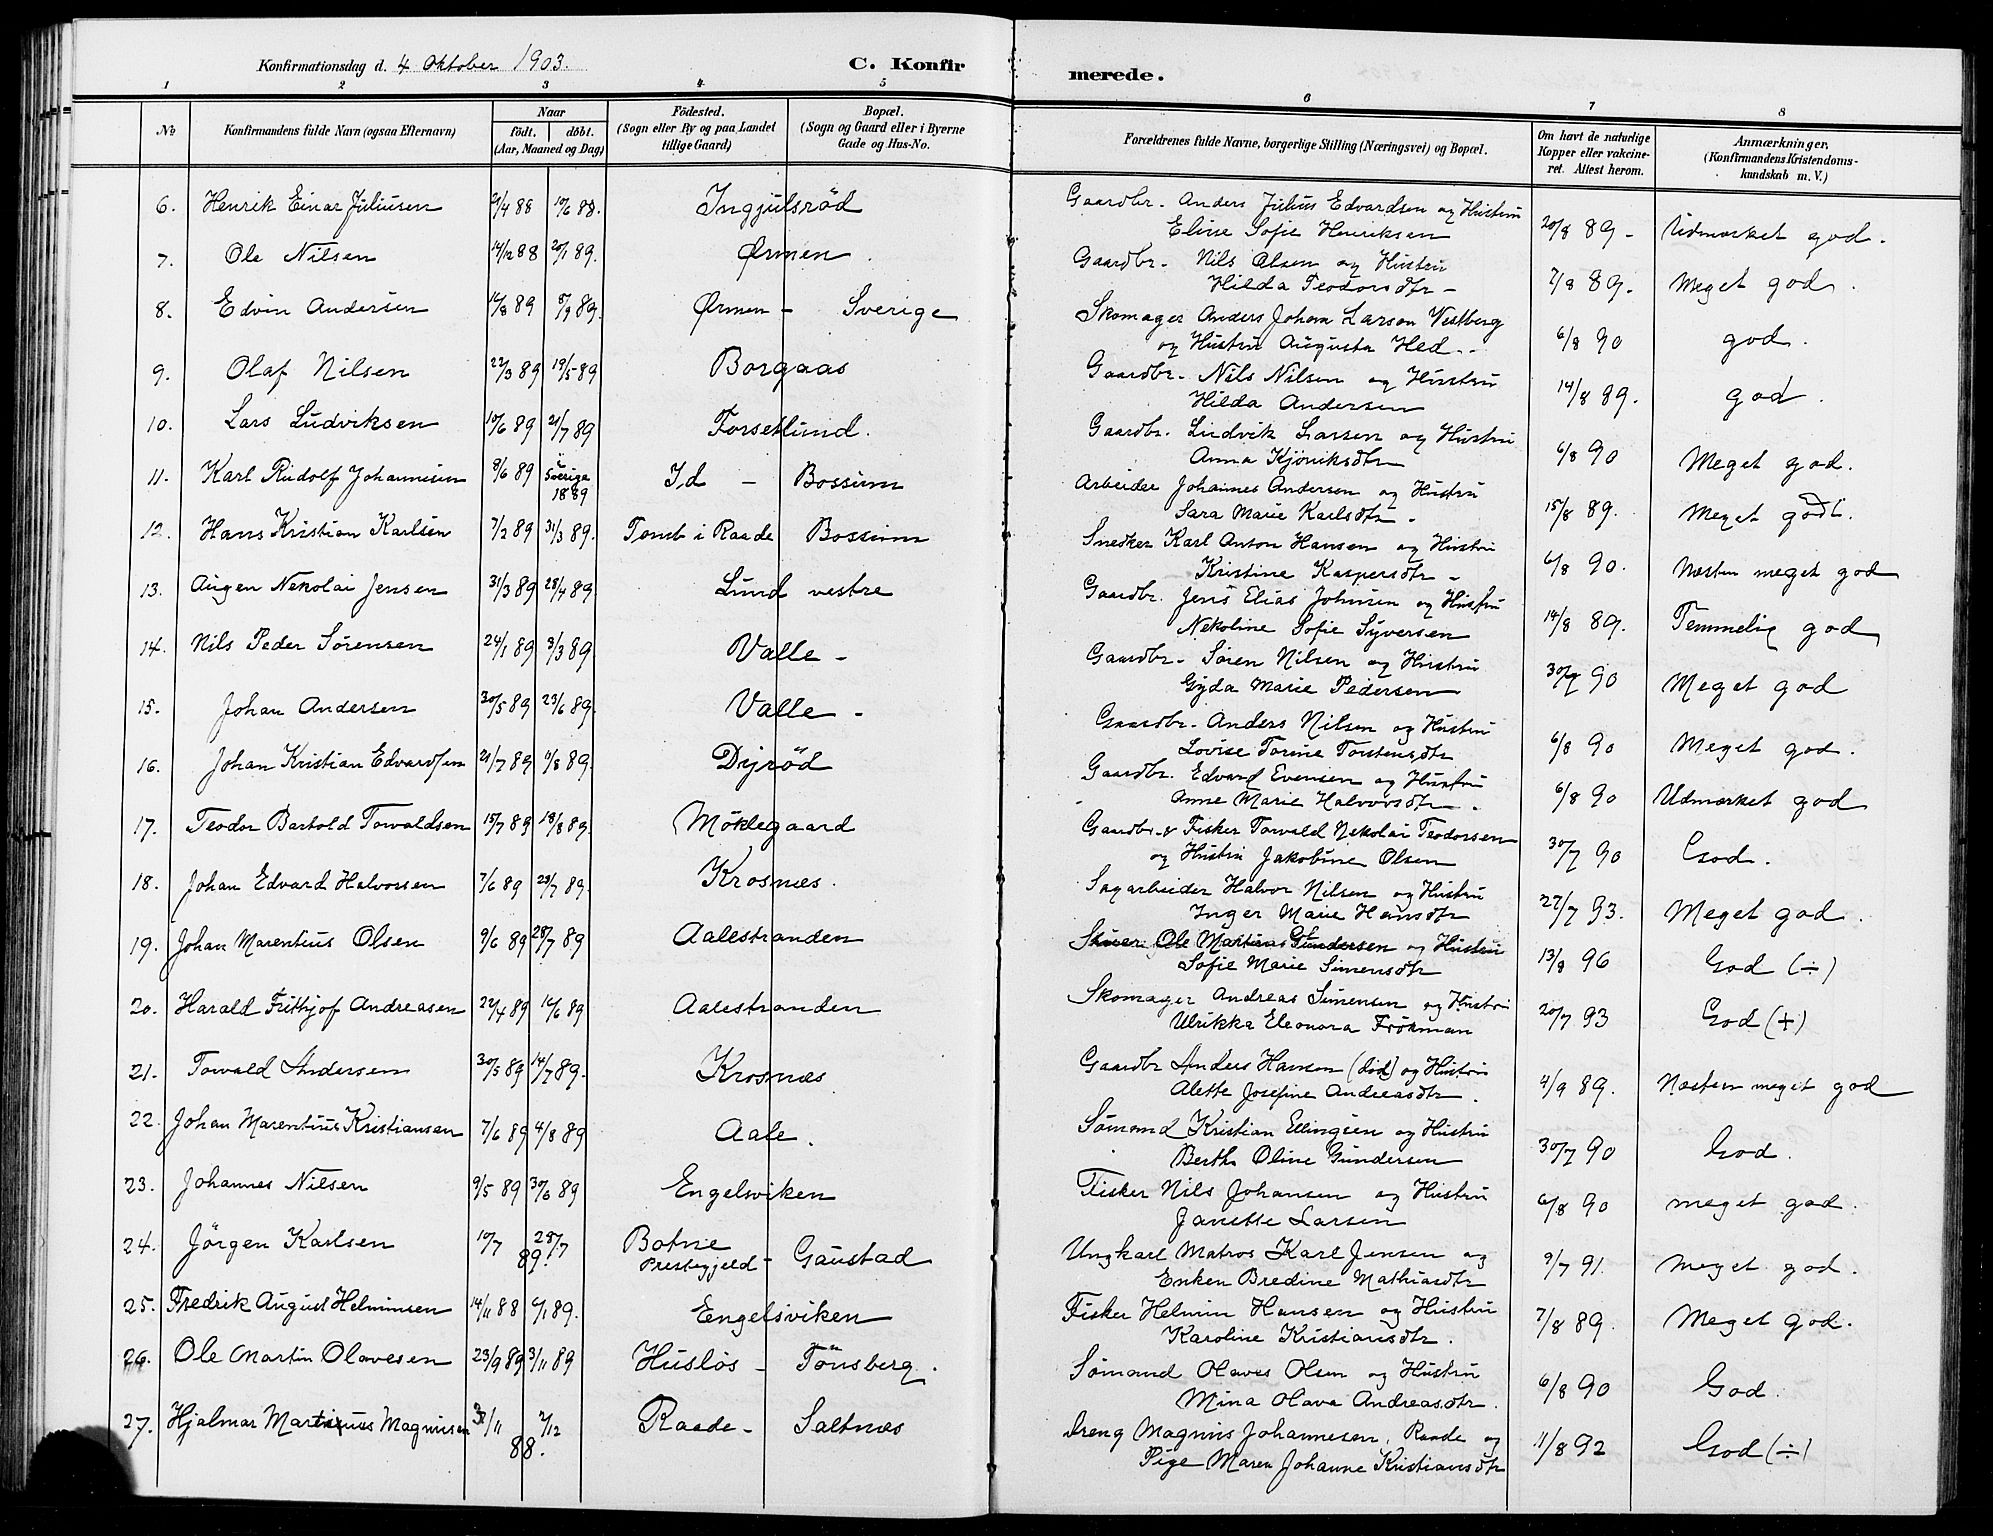 Konfirmationsdag d. 4 Oktober 1903. C. Konfir merede.
1 2 3 4 5 6 7 8
No Konfirmandens fulde Navn (ogsaa Efternavn) Naar födt. döbt. (Aar, Maaned og Dag) Födested. (Sogn eller By og paa Landet tillige Gaard) Bopæl. (Sogn og Gaard eller i Byerne Gade og Hus-No. Forældrenes fulde Navne, borgerlige Stilling (Næringsvei) og Bopæl. Om havt de naturlige Kopper eller vakcineret. Attest herom. Anmærkninger. (Konfirmandens Kristendomskundskab m. V.)
6. Henrik Einar Juliusen 21/4 88 10/6 88. Ingjulsröd Gaardbr. Anders Julius Edvardsen og Hustru
Elise Sofie Henriksen 20/8 89 - Udmærket god.
7. Ole Nilsen 14/12 88 20/1 89. Ørmen. Gaardbr. Nils Olsen og Hustru
Hilda Teodorsdtr - 7/8 89. Meget god.
8. Edvin Andersen 8/9 89. Ørmen - Sverige Skomager Anders Johan Larson Vestberg
og Hustru Augusta Hed. - 6/8 90 god.
9. Olaf Nilsen 22/3 89 19/5 89 Borgaas Gaardbr. Nils Nilsen og Hustru
Hilda Andersen 14/8 89. god.
10. Lars Ludviksen 10/6 89 21/7 89 Torsetlund. Gaardbr. Ludvik Larsen og Hustru
Anna Kjöniksdtr 6/8 90 Meget god.
11. Karl Rudolf Johannisen 8/6 89 i Sverige 1889 Id - Bossum Arbeider Johannes Andersen og Hustru
Sara Marie Karlsdtr - 15/8 89. Meget godt.
12. Hans Kristian Karlsen 7/2 89 31/3 89. Tomb i Raade Bossum Snedker Karl Anton Hansen og Hustru
Kristine Kaspersdtr - 6/8 90. Næsten meget god
13. Augen Nekolai Jensen 31/3 89 28/4 89. Lund vestre Gaardbr. Jens Elias Johnsen og Hustru
Nekoline Sofie Syversen 14/8 89. Temmelig god
14. Nils Peder Sörensen 24/1 89 3/3 89 Valle - Gaardbr. Sören Nilsen og Hustru
Gyda Marie Pedersen 30/7 90 Meget god
15. Johan Andersen 30/5 89 23/6 89. Valle - Gaardbr. Anders Nilsen og Hustru
Lovise Torine Torstensdtr 6/8 90 Meget god.
16. Johan Kristian Edvardsen 21/7 89 11/8 89. Dyröd Gaardbr. Edvard Evensen og Hustru
Anne Marie Halvorsdtr. 6/8 90 Udmærket god
17. Teodor Bartold Torvaldsen 15/7 89 18/8 89. Möklegaard Gaardbr. & Fisker Torvald Nekolai Teodorsen
og Hustru Jakobine Olsen 30/7 90 God.
18. Johan Edvard Halvorsen 7/6 89 28/7 89. Krosnæs. Sagarbeider Halvor Nilsen og Hustru
Inger Marie Hansdtr 27/7 93. Meget god.
19. Johan Marentius Olsen 9/6 89 28/7 89 Aalestranden Ole Martinus Gundersen og Hustru
Sofie Marie Simensdtr 13/8 96 God (÷)
20. Harald Frithjof Andreasen 22/4 89 16/6 89 Aalestranden Skomager Andreas Simensen og Hustru
Ulrikka Eleonora Frökman 20/7 93 God (+)
21. Torvald Andersen 30/5 89 14/7 89. Krosnæs Gaardbr Anders Hansen (död) og Hustru
Alette Josefine Andreasdtr. 4/9 89. Næsten meget god
22. Johan Marentius Kristiansen 7/6 89 4/8 89 Aale. Sömand Kristian Ellingsen og Hustru
Berthe Oline Gundersen 30/7 90 God.
23. Johannes Nilsen 9/5 89 30/6 89 Engelsviken Fisker Nils Johansen og Hustru
Janette Larsen 6/8 90 meget god.
24. Jörgen Karlsen 10/7 28/7 89. Botne Prestegjeld - Gaustad Ungkarl Matros Karl Jensen og
Enken Bredine Mathiasdtr 9/7 91. Meget god.
25. Fredrik August Helminsen 14/11 88 6/1 89. Engelsviken Fisker Helmin Hansen og Hustru
Karoline Kristiansdtr. 7/8 89. Meget god.
26. Ole Martin Olavesen 23/9 89 3/11 89 Huslös - Tönsberg. Sömand Olaves Olsen og Hustru
Mina Olava Andreasdtr. 6/8 90 God.
27. Hjalmar Martinius Magnusen /11 2/12 88. Raade - Saltnæs Dreng Magnus Johannesen, Raade og
Pige Maren Johanne Kristiansdtr 11/8 92 God (÷)